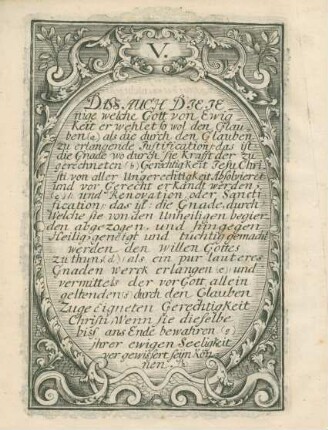 V.
DASS AUCH DIE JE
nige welche Gott von Ewig
Keit erwehlet so wol den Glau
ben (a) als die durch den Glauben
zu erlangende Justification, das ist
die Gnade wo durch sie Krafft der zu
gerechneten (b) Gerechtigkeit Jesu Chri
sti von aller Ungerechtigkeit Absolvieret
und vor Gerecht erkandt werden,
(c) und Renovation oder Sancti
fication, das ist die Gnade, durch
Welche sie von den Unheiligen begier
den abgezogen, und hingegen
Heilig, geneigt und tüchtig gemacht
werden den willen Gottes
zu thun (d) als ein pur lauteres
Gnaden werck erlangen (e) und
vermittels der vor Gott allein
geltenden (f) durch den Glauben
Zugeeigneten Gerechtigkeit
Christi, Wenn sie dieselbe
biss ans Ende bewahren (g)
ihrer ewigen Seeligkeit
vergewissert seyn kön
nen.